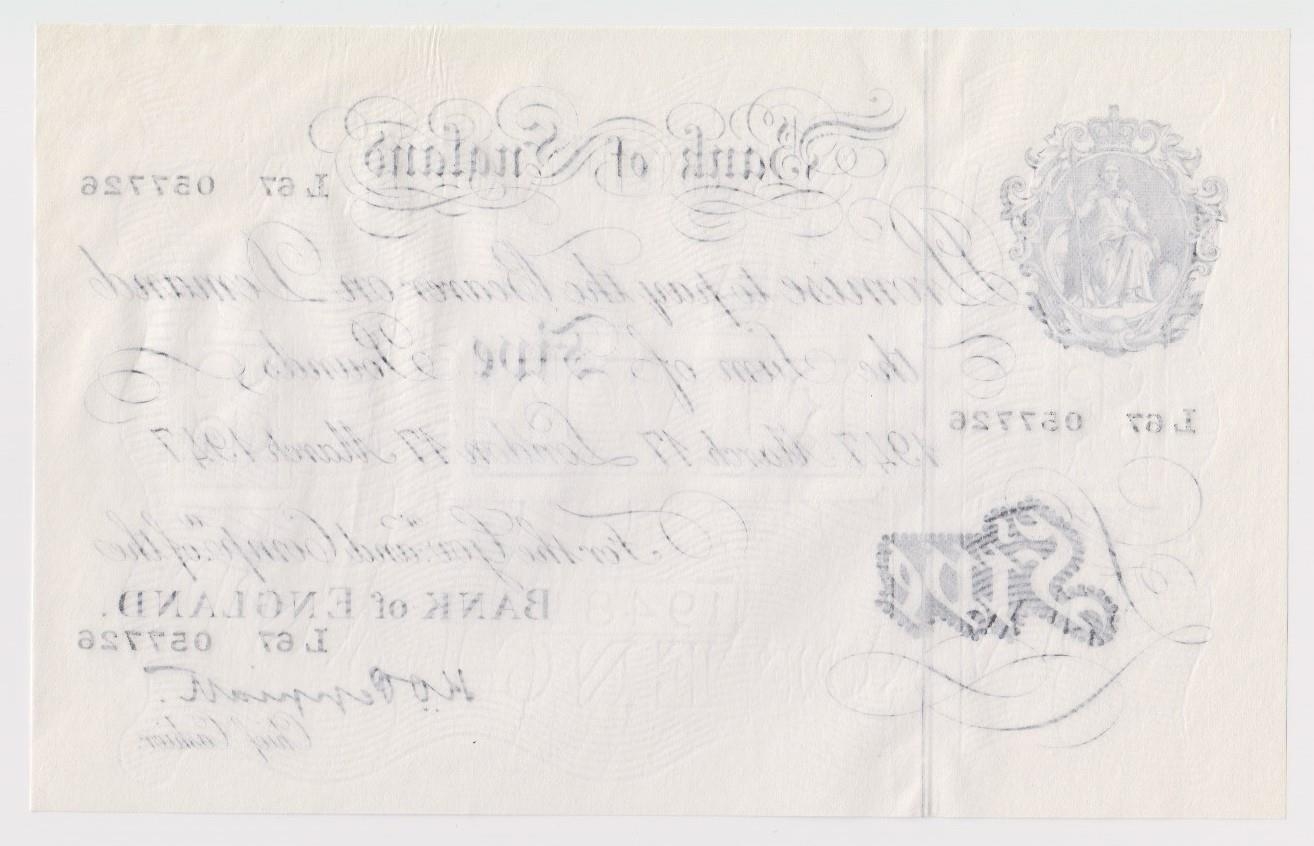 Bank of England
L 67 057726
Promise to pay the Bearer on Demand
the Sum of Five Pounds
L 67 057726
1947 March 17 London 17 March 1947
For the Govr. and Compa. of the
BANK of ENGLAND.
Five
L 67 057726
Chief Cashier.